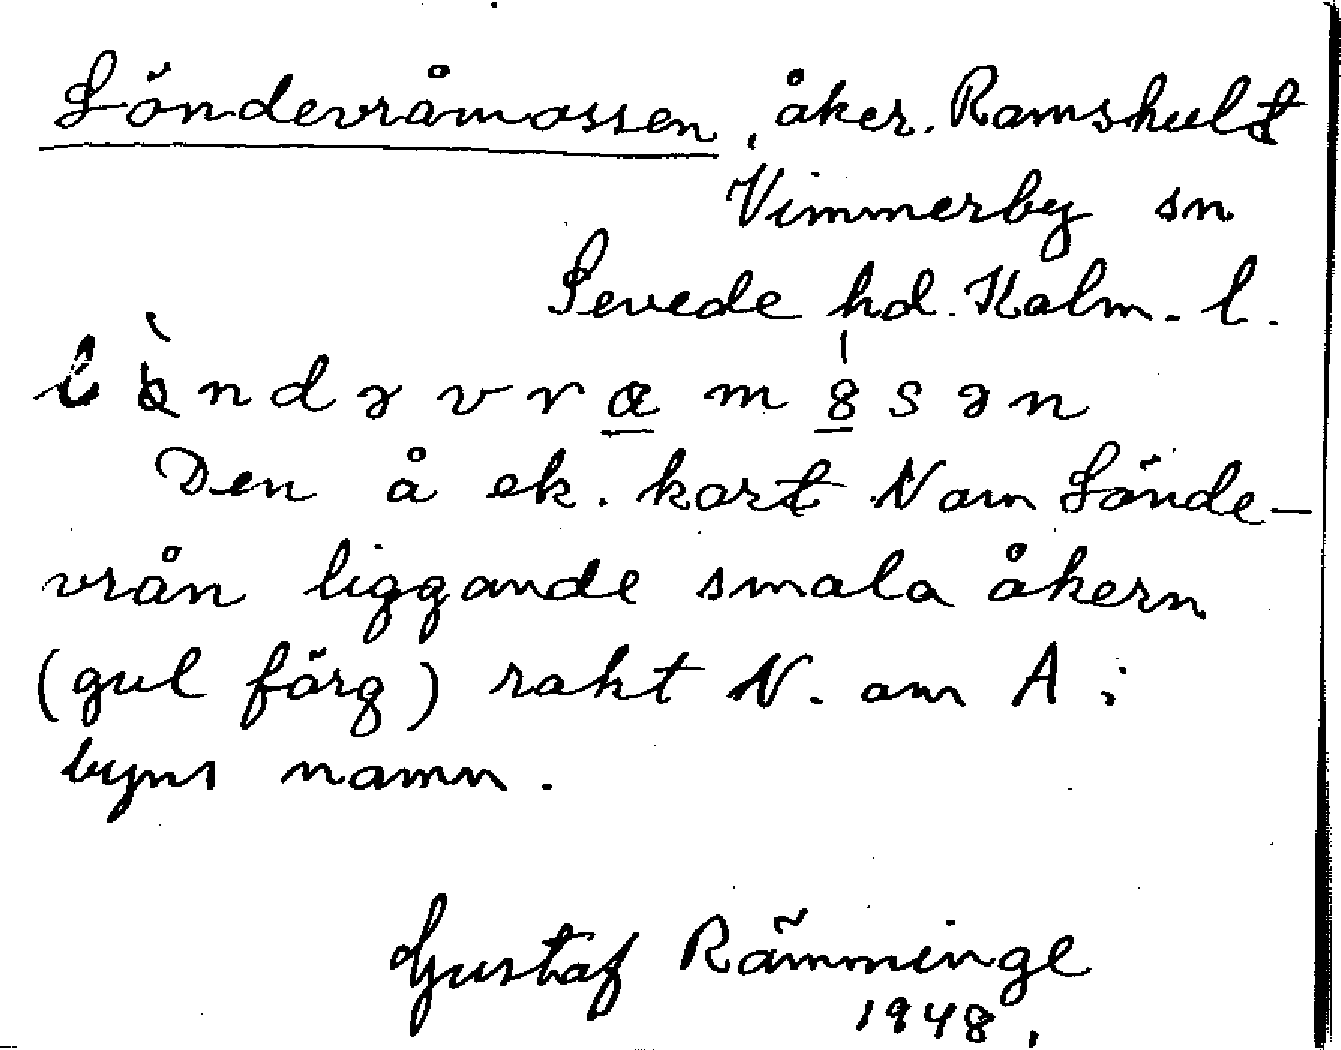 Löndevråmossen, åker. Ramshult
Vimmerby sn
Sevede hd. Kalm. l.
Den å ek. kart N om Lönde-
vrån liggande smala åkern
(gul färg) rakt N. om A i
byns namn.
Gustaf Rämminge
1948.